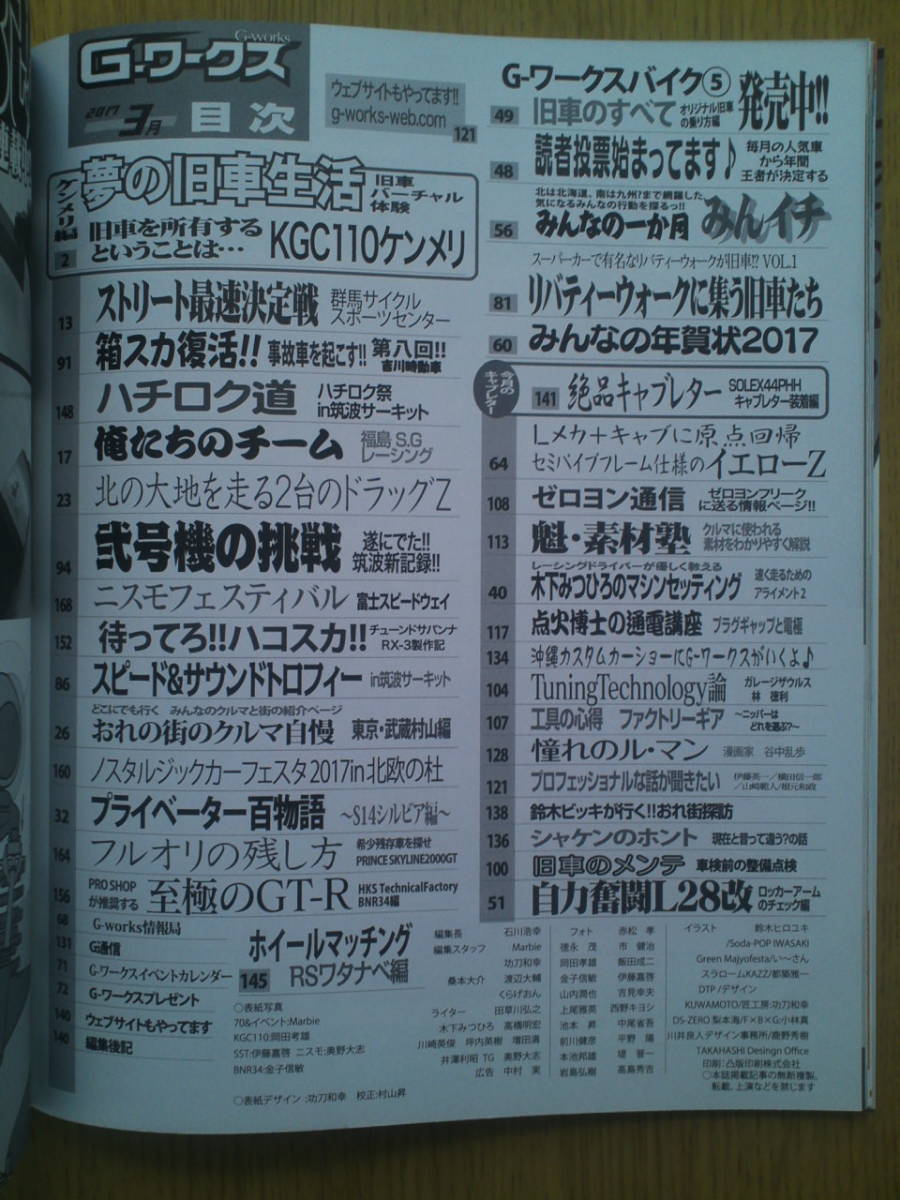 G-works
G-ワークス
2017 3月 目次
ウェブサイトもやってます!!
g-works-web.com 121
ケンメリ編
夢の旧車生活 旧車バーチャル体験
旧車を所有するということは… KGC110ケンメリ
2
ストリート最速決定戦 群馬サイクルスポーツセンター
13
箱スカ復活!! 事故車を起こす!! 第八回!! 吉川時動車
91
ハチロク道 ハチロク祭in筑波サーキット
148
俺たちのチーム 福島 S.Gレーシング
17
23 北の大地を走る2台のドラッグZ
弐号機の挑戦 遂にでた!!筑波新記録!!
94
168 ニスモフェスティバル 富士スピードウェイ
152 待ってろ!!ハコスカ!! チューンドサバンナRX-3製作記
86 スピード&サウンドトロフィー in筑波サーキット
どこにでも行く みんなのクルマと街の紹介ページ
26 おれの街のクルマ自慢 東京・武蔵村山編
160 ノスタルジックカーフェスタ2017in北欧の杜
32 プライベーター百物語 〜S14シルビア編〜
164 フルオリの残し方 希少残存車を探せ PRINCE SKYLINE2000GT
156 PRO SHOPが推奨する 至極のGT-R HKS TechnicalFactory BNR34編
68 G-works情報局
131 G通信
71 G-ワークスイベントカレンダー
72 G-ワークスプレゼント
140 ウェブサイトもやってます
140 編集後記
ホイールマッチング
145 RSワタナベ編
〇表紙写真
70&イベント:Marbie
KGC110:岡田孝雄
SST:伊藤嘉啓 ニスモ:奥野大志
BNR34:金子信敏
〇表紙デザイン:功刀和幸 校正:村山昇
G-ワークスバイク⑤ 発売中!!
49 旧車のすべて オリジナル旧車の乗り方編
48 読者投票始まってます♪ 毎月の人気車から年間王者が決定する
北は北海道、南は九州?まで網羅した
気になるみんなの行動を探るっ!!
56 みんなの一か月 みんイチ
スーパーカーで有名なリバティーウォークが旧車!? VOL.1
81 リバティーウォークに集う旧車たち
60 みんなの年賀状2017
今月のキャブレター
141 絶品キャブレター SOLEX44PHHキャブレター装着編
Lメカ+キャブに原点回帰
64 セミパイプフレーム仕様のイエローZ
108 ゼロヨン通信 ゼロヨンフリークに送る情報ページ!!
113 魁・素材塾 クルマに使われる素材をわかりやすく解説
レーシングドライバーが優しく教える
40 木下みつひろのマシンセッティング 速く走るためのアライメント2
117 点火博士の通電講座 プラグギャップと電極
134 沖縄カスタムカーショーにG-ワークスがいくよ♪
104 TuningTechnology論 ガレージザウルス 林 徳利
107 工具の心得 ファクトリーギア 〜ニッパーはどれを選ぶ?〜
128 憧れのル・マン 漫画家 谷中乱歩
121 プロフェッショナルな話が聞きたい 伊藤英一/横田信一郎/山崎範人/根元和政
138 鈴木ビッキが行く!!おれ街探訪
136 シャケンのホント 現在と昔って違う?の話
100 旧車のメンテ 車検前の整備点検
51 自力奮闘L28改 ロッカーアームのチェック編
編集長 石川浩幸
編集スタッフ Marbie
功刀和幸
桑本大介 渡辺大輔
くらげおん
ライター 田草川弘之
木下みつひろ 高橋明宏
川崎英俊 坪内英樹 増田満
井澤利昭 TG 奥野大志
広告 中村 実
フォト 赤松 孝
徳永 茂 市 健治
岡田孝雄 飯田成二
金子信敏 伊藤嘉啓
山内潤也 吉見幸夫
上尾雅英 西野キヨシ
池本 昇 中尾省吾
前川健彦 平野 陽
本池邦雄 堤 晋一
岩島弘樹 高島秀吉
イラスト 鈴木ヒロユキ
/Soda-POP IWASAKI
Green Majyofesta/い〜さん
スラロームKAZZ/都築雅一
DTP/デザイン
KUWAMOTO/匠工房:功刀和幸
DS-ZERO 梨本海/F×B×G:小林真
川井良人デザイン事務所/鹿野秀樹
TAKAHASHI Desingn Office
印刷:凸版印刷株式会社
〇本誌掲載記事の無断複製、
転載、上演などを禁じます